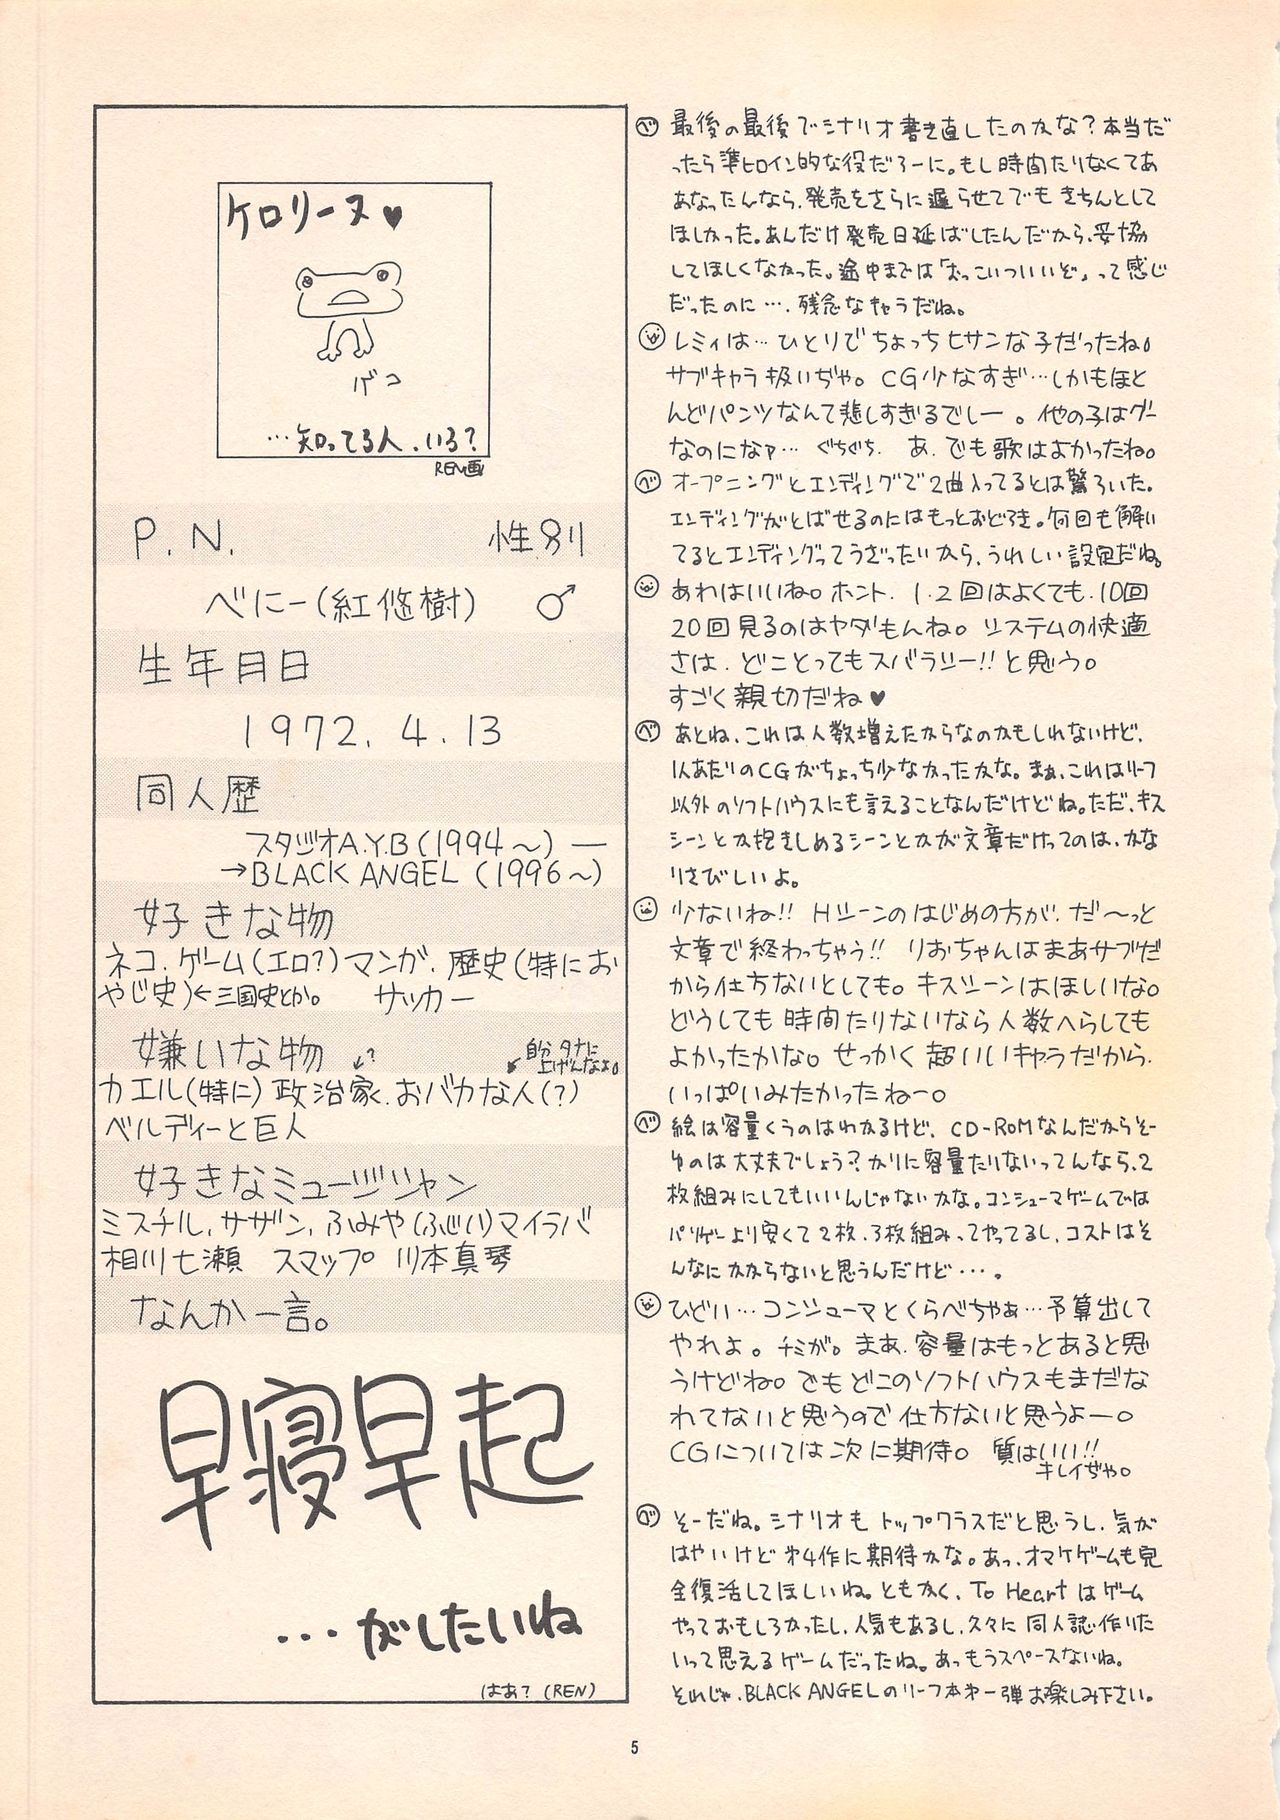 ケロリーヌ♥
ゲコ
…知ってる人、いる?
REN画
P.N.　性別
べにー(紅悠樹)　♂
生年月日
1972.4.13
同人歴
スタジオA.Y.B(1994〜)―
→BLACK ANGEL(1996〜)
好きな物
ネコ、ゲーム(エロ?)マンガ、歴史(特にお
やじ史)←三国史とか。　サッカー
嫌いな物　↙?　↙自分タナに
上げんなよ。
カエル(特に)政治家、おバカな人(?)
ベルディーと巨人
好きなミュージシャン
ミスチル、サザン、ふみや(ふじい)マイラバ
相川七瀬　スマップ　川本真琴
なんか一言。
早寝早起
…がしたいね
はあ?(REN)
べ 最後の最後でシナリオ書き直したのかな?本当だ
ったら準ヒロイン的な役だろーに。もし時間たりなくてあ
あなったんなら、発売をさらに遅らせてでもきちんとして
ほしかった。あんだけ発売日延ばしたんだから、妥協
してほしくなかった。途中までは「おっこいついいぞ」って感じ
だったのに…。残念なキャラだね。
レミィは…ひとりでちょっちヒサンな子だったね。
サブキャラ扱いぢゃ。CG少なすぎ…しかもほと
んどパンツなんて悲しすぎるでしー。他の子はグー
なのになァ…ぐちぐち　あ、でも歌はよかったね。
べ オープニングとエンディングで2曲入ってるとは驚ろいた。
エンディングがとばせるのにはもっとおどろき。何回も解い
てるとエンディングってうざったいから、うれしい設定だね。
あれはいいね。ホント、1・2回はよくても、10回
20回見るのはヤダもんね。システムの快適
さは、どことってもスバラシー!!と思う。
すごく親切だね♥
べ あとね、これは人数増えたからなのかもしれないけど、
1人あたりのCGがちょっち少なかったかな。まぁ、これはリーフ
以外のソフトハウスにも言えることなんだけどね。ただ、キス
シーンとか抱きしめるシーンとかが文章だけってのは、かな
りさびしいよ。
少ないね!! Hシーンのはじめの方が、だ〜っと
文章で終わっちゃう!! りおちゃんはまあサブだ
から仕方ないとしても。キスシーンはほしいな。
どうしても時間たりないなら人数へらしても
よかったかな。せっかく超いいキャラだから、
いっぱいみたかったねー。
べ 絵は容量くうのはわかるけど、CD-ROMなんだからそー
ゆのは大丈夫でしょう?かりに容量たりないってんなら、2
枚組みにしてもいいんじゃないかな。コンシューマゲームでは
パソゲーより安くて2枚、3枚組みってやってるし、コストはそ
んなにかからないと思うんだけど…。
ひどい…コンシューマとくらべちゃぁ…予算出して
やれよ。チミが。まあ、容量はもっとあると思
うけどね。でもどこのソフトハウスもまだな
れてないと思うので仕方ないと思うよー。
CGについては次に期待。質はいい!!
キレイぢゃ。
べ そーだね。シナリオもトップクラスだと思うし、気が
はやいけど第4作に期待かな。あっ、オマケゲームも完
全復活してほしいね。ともかく、To Heartはゲーム
やっておもしろかったし、人気もあるし、久々に同人誌作りた
いって思えるゲームだったね。あっもうスペースないね。
それじゃ、BLACK ANGELのリーフ本第一弾お楽しみ下さい。
5